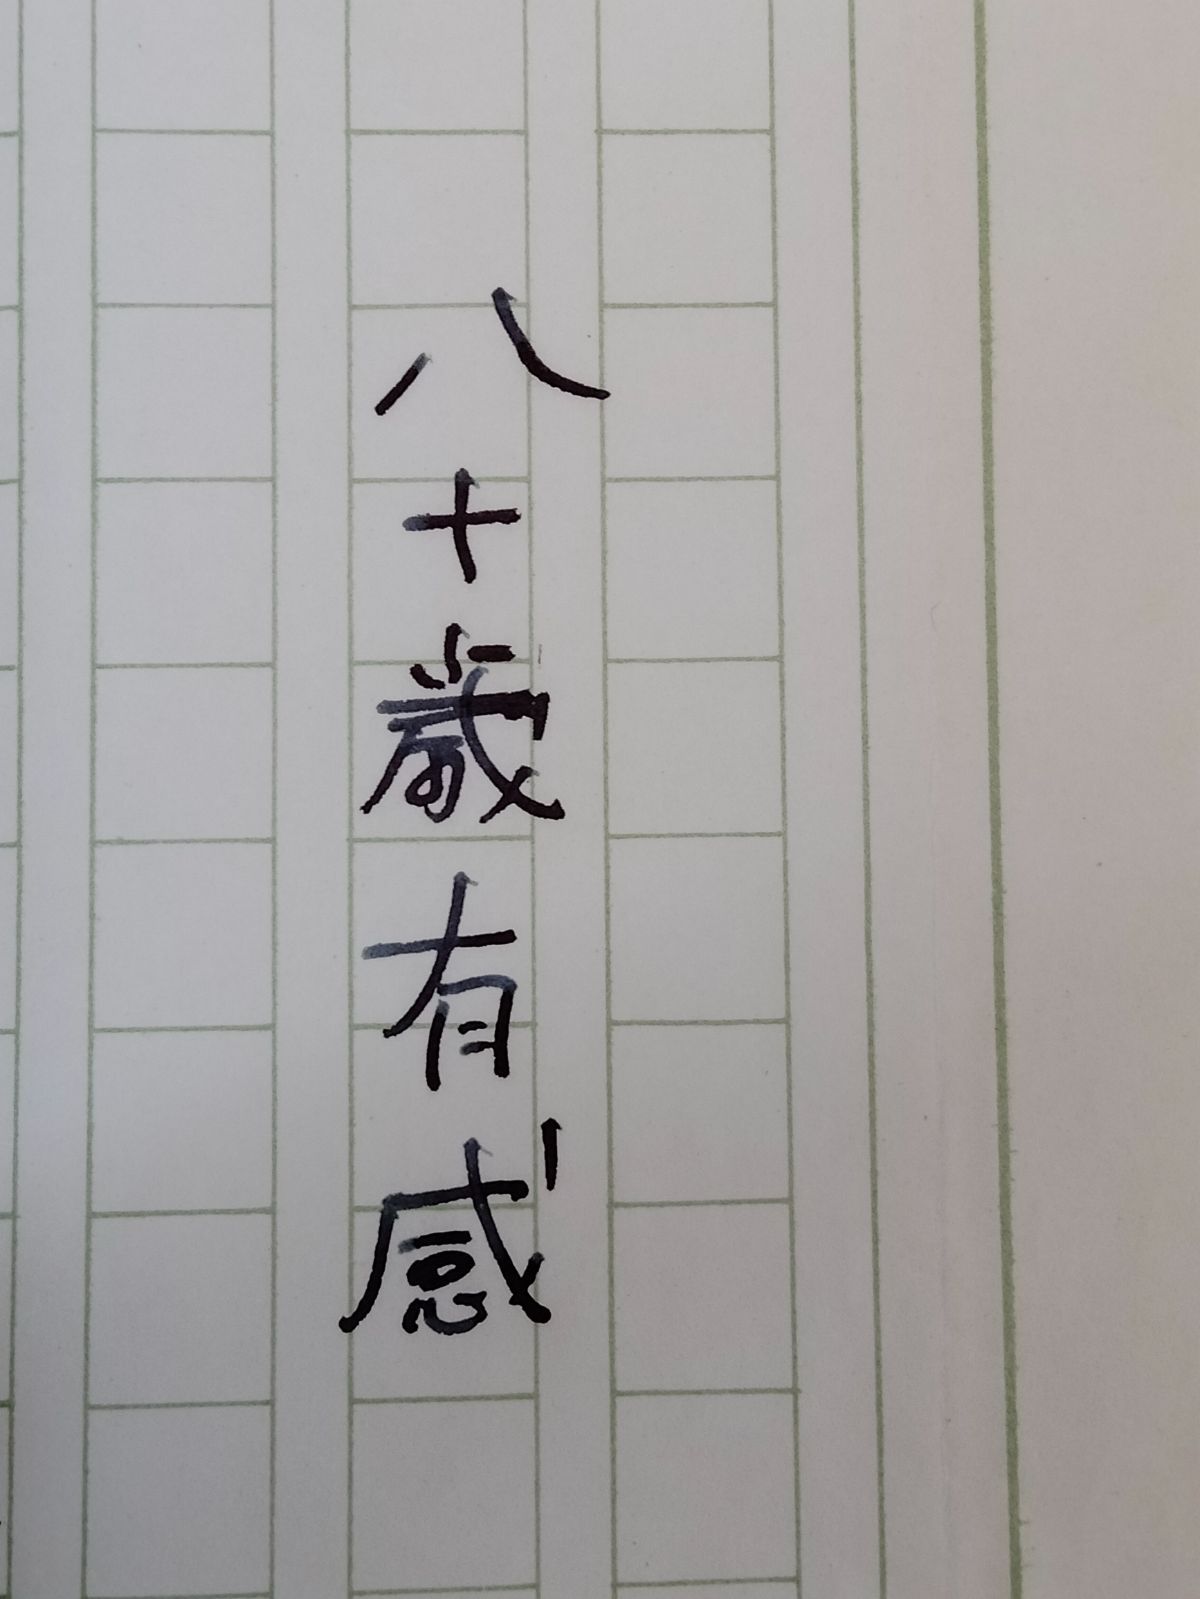 八十歳有感